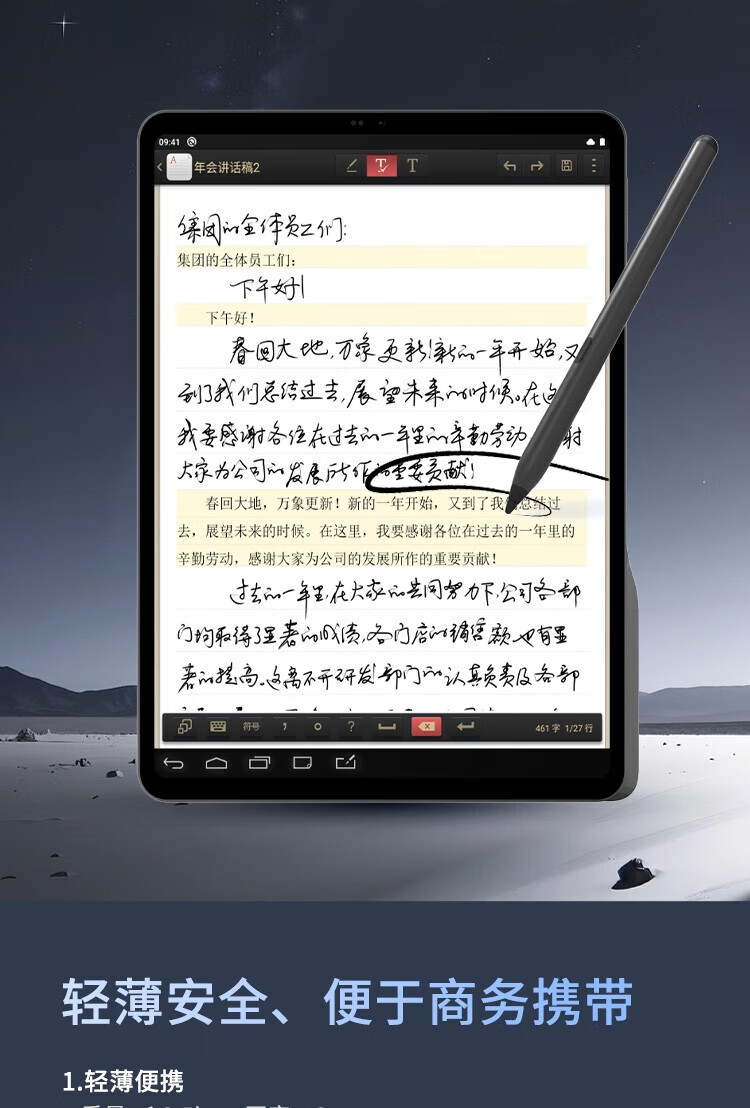 09:41
年会讲话稿2
T T
集团的全体员工们:
集团的全体员工们：
下午好!
下午好！
春回大地,万象更新!新的一年开始,又
到了我们总结过去,展望未来的时候。在这
我要感谢各位在过去的一年里的辛勤劳动 谢
大家为公司的发展所作的重要贡献!
春回大地，万象更新！新的一年开始，又到了我们总结过
去，展望未来的时候。在这里，我要感谢各位在过去的一年里的
辛勤劳动，感谢大家为公司的发展所作的重要贡献！
过去的一年里,在大家的共同努力下,公司各部
门均取得了显著的成绩,各门店的销售额也有显
著的提高。这离不开研发部门的认真负责及各部
符号 , ? 461 字 1/27 行
轻薄安全、便于商务携带
1.轻薄便携